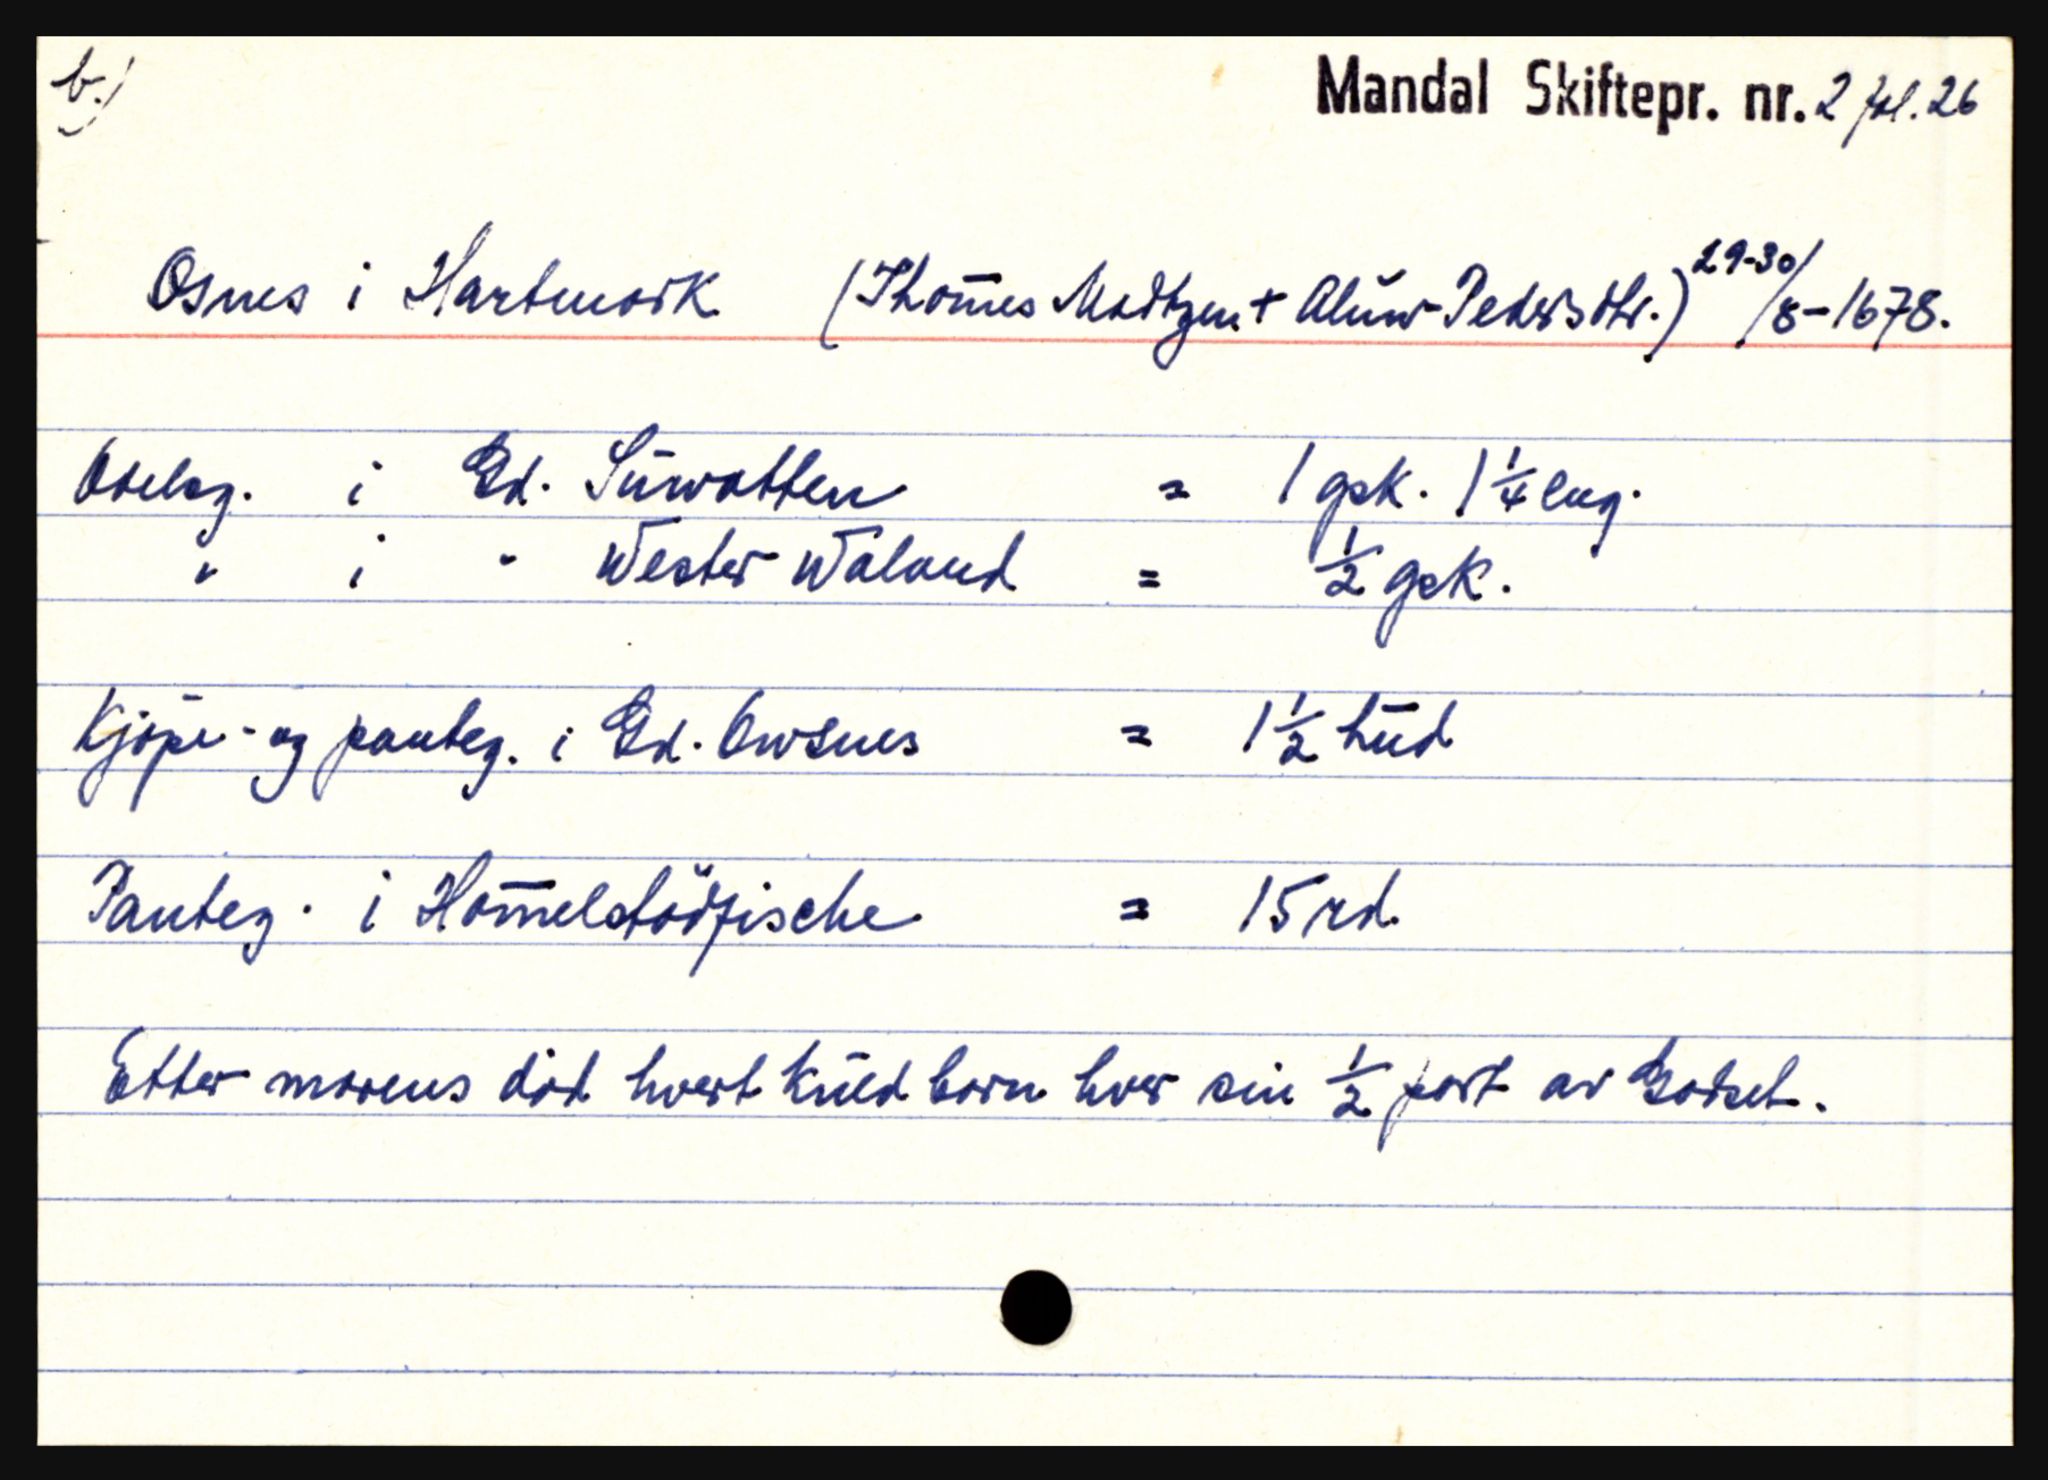 b.)
Mandal Skiftepr. nr. 2 fol. 26
Osnes i Hartmark (Thom̄es Madtzen + Aluw Pedersdtr.) 29-30/8-1678.
Odelsg. i Gd. Suwatten = 1 gsk. 1 1/4 eng.
" i " Wester Waland = 1/2 gsk.
Kjöpe- og panteg. i Gd. Owsnes = 1 1/2 hud
Panteg. i Hom̄elstödfische = 15 rd.
Etter morens död hvert kuld born hver sin 1/2 part av Godset.